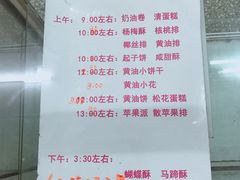 上午： 9:00左右：奶油卷 清蛋糕
10:00左右：杨梅酥 核桃排
椰丝排 黄油排
10:80左右：起子饼 咸甜酥
12:00左右：黄油小饼干
黄油小花
00左右：黄油饼 松花蛋糕
13:00左右：苹果派 散苹果排
下午：3:30左右：
蝴蝶酥 马蹄酥